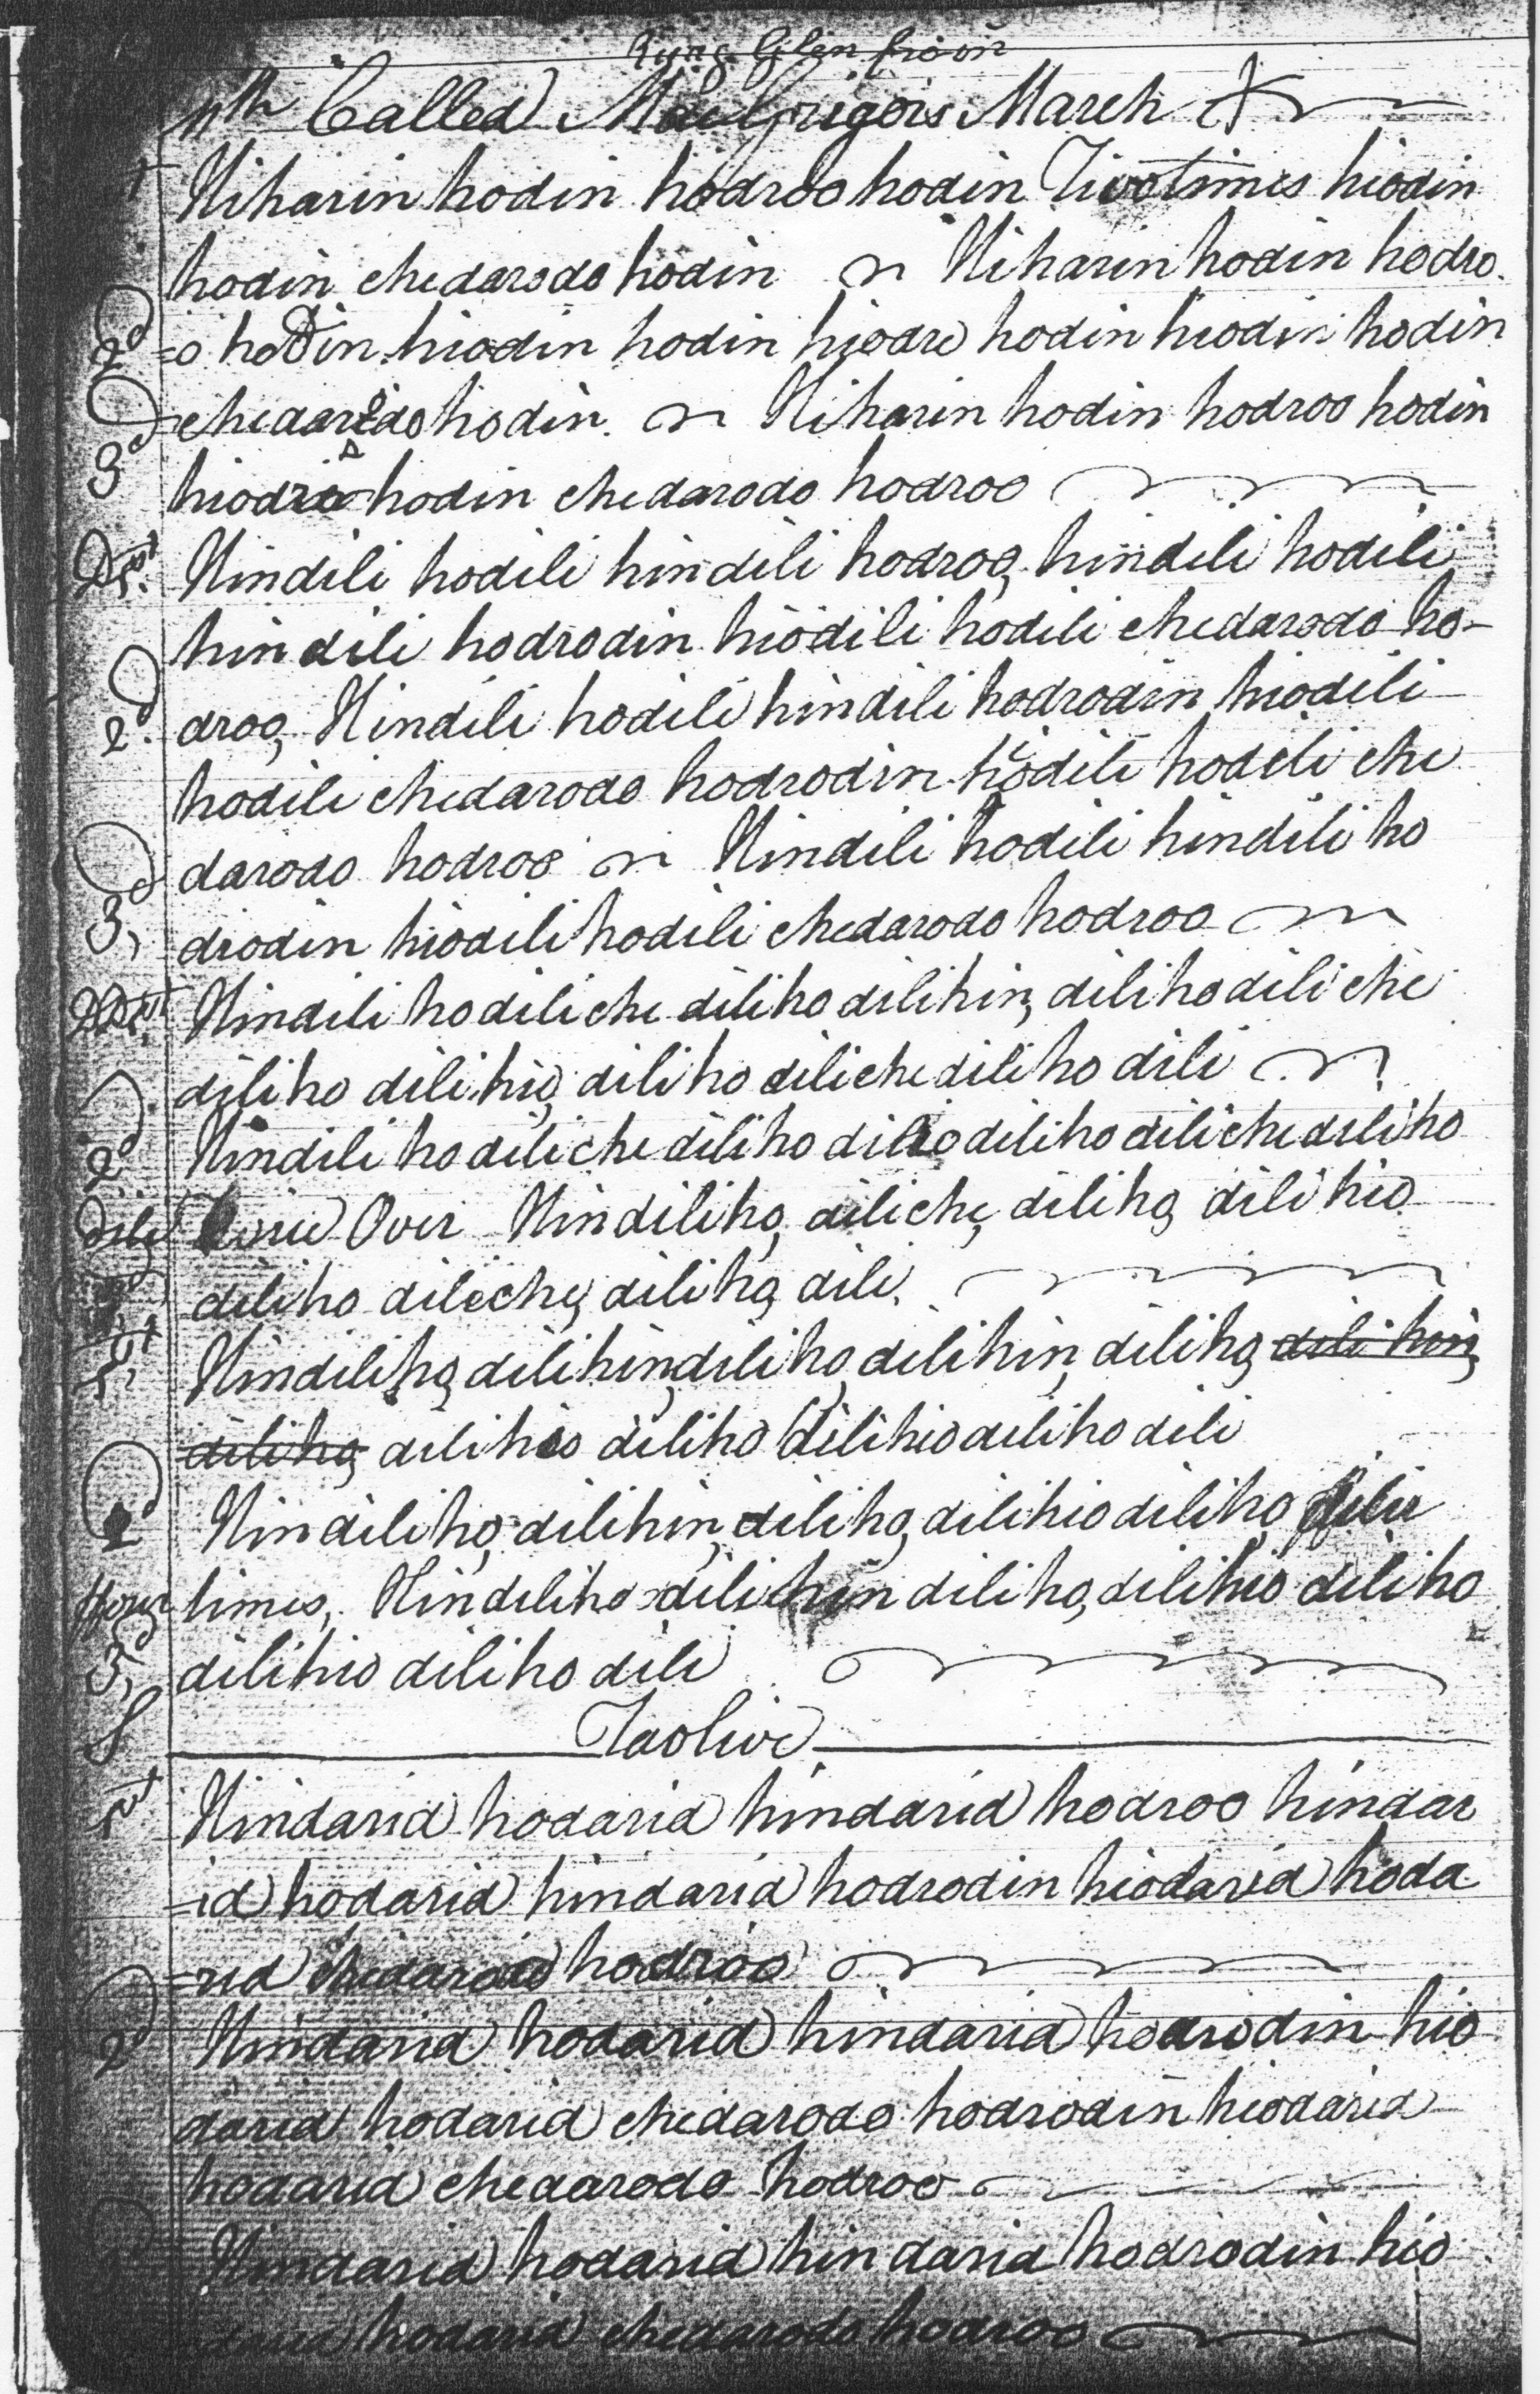 11th Called MacGrigors March
1st Hiharin hodin hodroo hodin Two times hiodin
hodin chedarodo hodin Hiharin hodin hodro
2d =o hodin hiodin hodin hiodre hodin hiodin hodin
3d chedarodo hodin. Hiharin hodin hodroo hodin
hiodro hodin chedarodo hodroo
D 1st Hindili hodili hindili hodroo, hindili hodili
hindili hodrodin hiodili hodili chedarodo ho-
2d droo, Hindili hodili hindili hodrodin hiodili
hodili chedarodo hodrodin hiodili hodili che
3d darodo hodroo Hindili hodili hindili ho
drodin hiodili hodili chedarodo hodroo
DD 1st Hindili ho dili che dili ho dili hin, dili ho dili che
dili ho dili hio, dili ho dili che dili ho dili
2d Hindili ho dili che dili ho dili hio dili ho dili che dili ho
dili Over Hindili ho, dili che, dili ho, dili hio
3d dili ho dili che, dili ho, dili.
1st Hindili ho, dili hin, dili ho, dili hin, dili ho, dili hin,
dili ho, dili hio dili ho dili hio dili ho dili
2d Hindili ho, dili hin, dili ho, dili hio dili ho, dili
times, Hindili ho dili hin dili ho, dili hio dili ho
3d dili hio dili ho dili
S Taolive
1st Hindarid hodarid hindarid hodroo hindar
=id hodarid hindarid hodrodin hiodarid hoda
=rid chedarodo hodroo
2d Hindarid hodarid hindarid hodrodin hio
darid hodarid chedarodo hodrodin hiodarid
hodarid chedarodo hodroo
Hindarid hodarid hindarid hodrodin hio
darid hodarid chedarodo hodroo